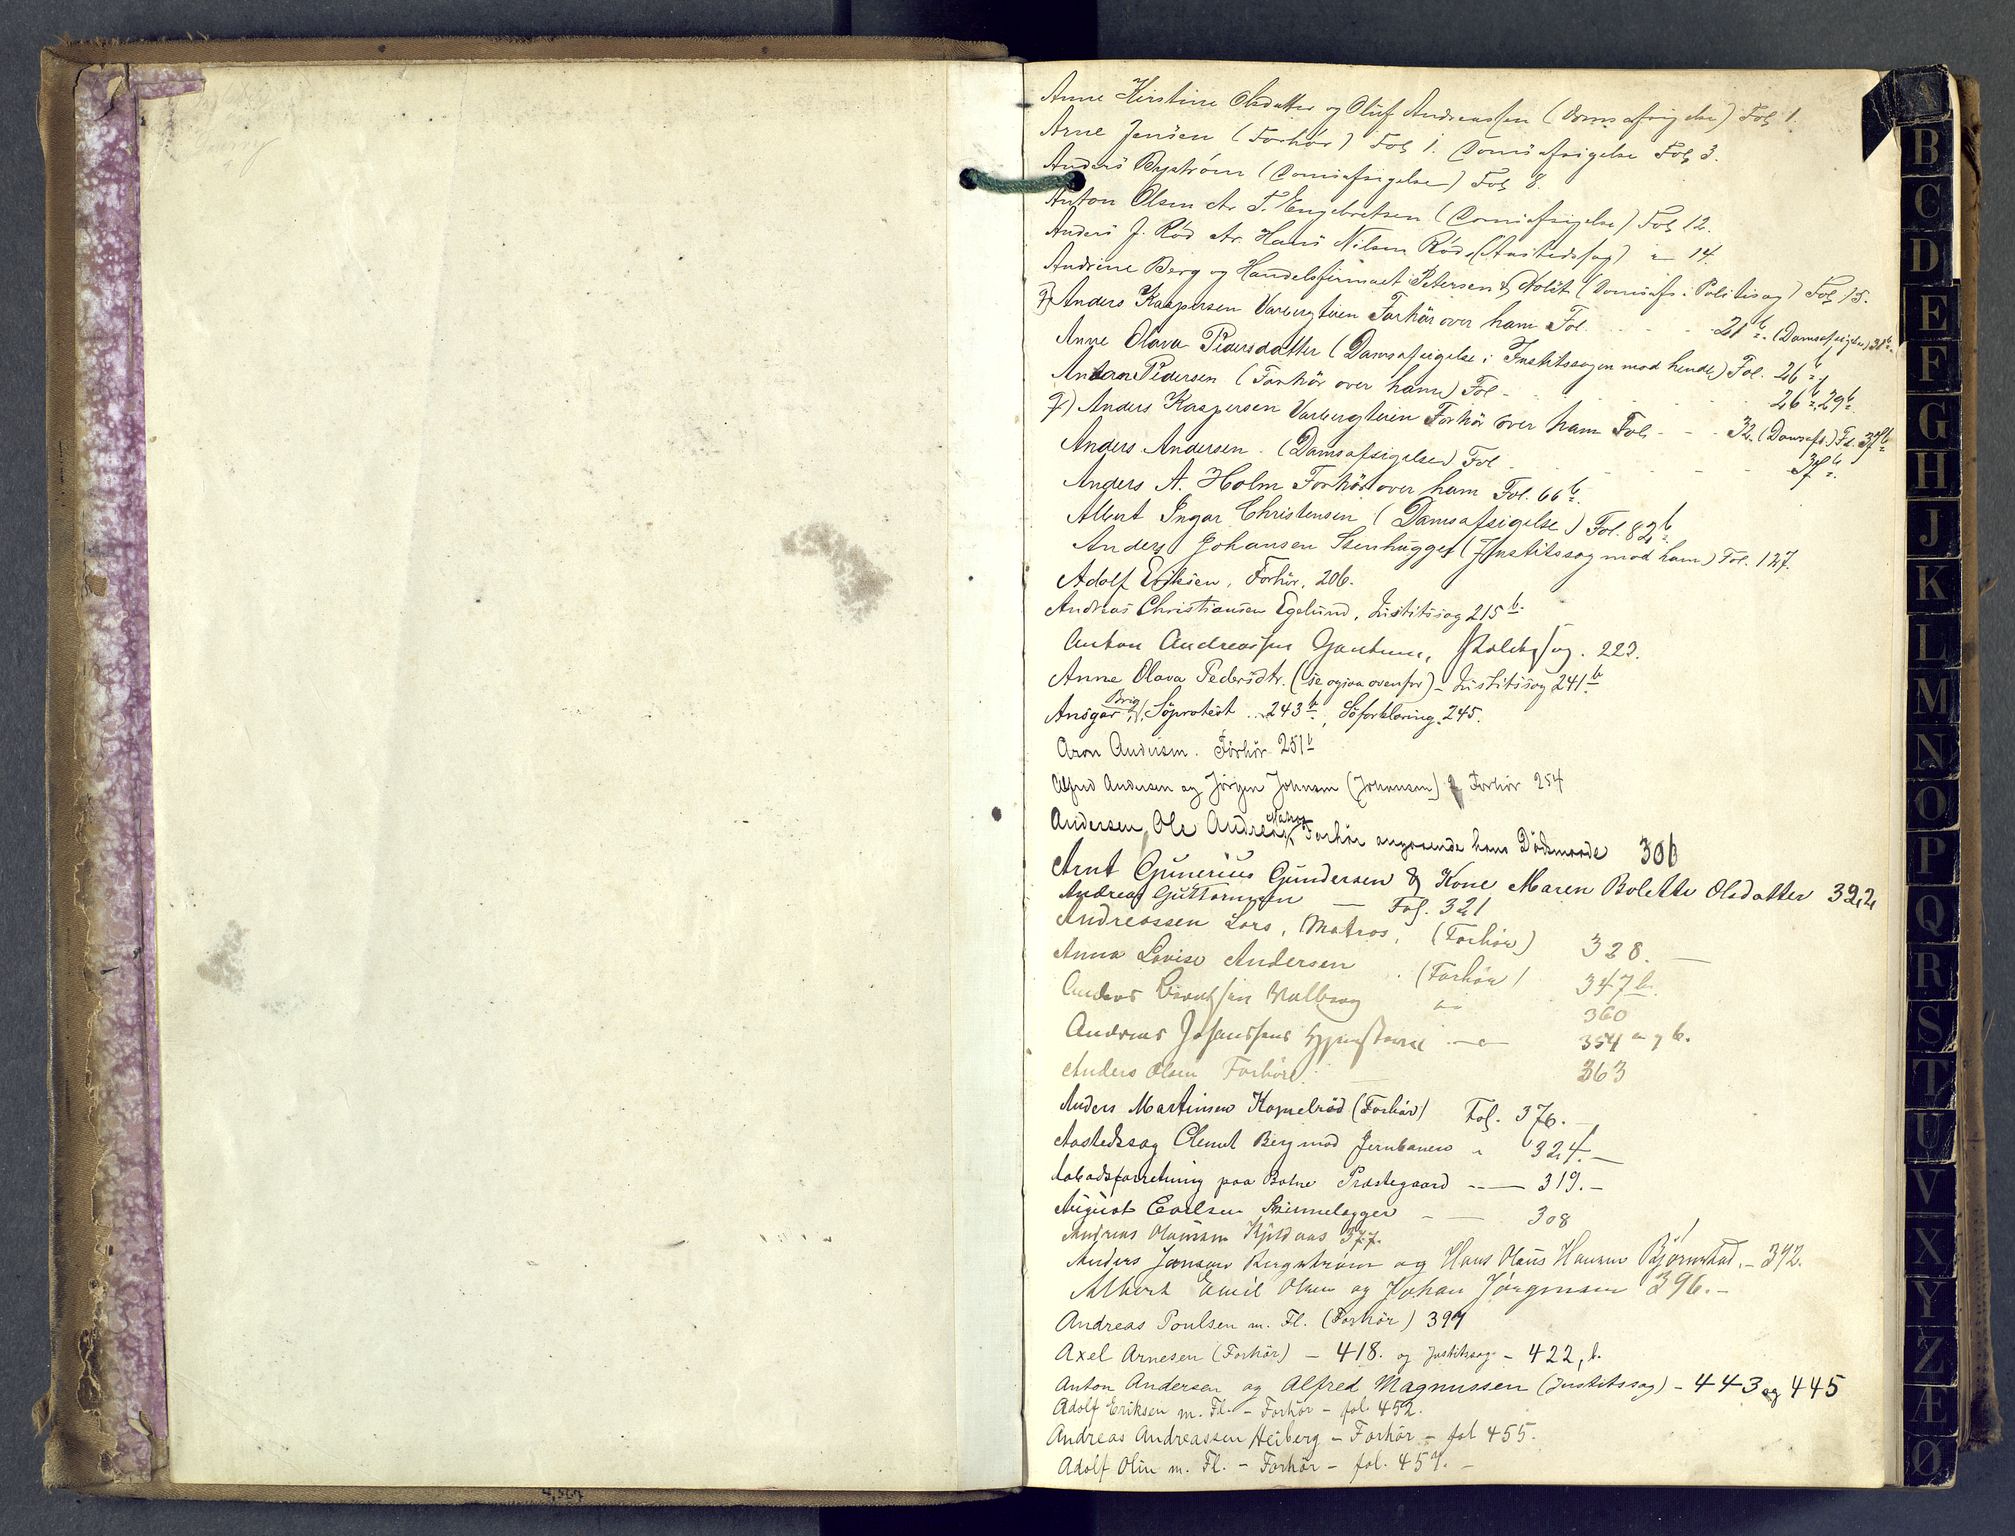 Anne Kirstine Olsdatter og Oluf Andreassen (Domsafsigelse) Fol 1.
Arne Jensen (Forhör) Fol 1. Domsafsigelse Fol 3.
Anders Byström (Domsafsigelse) Fol 8.
Anton Olsen ctr. T. Engebretsen (Domsafsigelse) Fol 12.
Anders J. Röd ctr. Hans Nilsen Röds (Aastedssag) " 14.
Andrine Berg og Handelsfirmaet Petersen & Holst (Domsafs. i Politisag) Fol 15.
Anders Kaspersen Varbergtvien Forhör over ham Fol. 21b. (Domsafsigelse)
Anne Olava Pedersdatter (Domsafsigelse i Justitssagen mod hende) Fol. 26b
Pedersen (Forhör over ham) Fol. 26b, 29b
Anders Kaspersen Varbergtvien Forhör over ham Fol. 32. (Domsafs.) Fol.
Anders Andersen. (Domsafsigelse) Fol
Anders A. Holm Forhör over ham Fol. 66b.
Albert Ingar Christensen (Domsafsigelse) Fol. 82b.
Anders Johansen Stenhugger (Justitssag mod ham) Fol. 127.
Adolf Eriksen, Forhör, 206.
Andreas Christiansen Egelund, Justitssag 215b.
Anton Andreassen 222.
Anne Olava Pedersdtr. (se ogsaa ovenfor) - Justitssag 241b.
Ansgar, Brig, Söprotest 243b, Söforklaring 245.
Aron Andersen. Förhör 251b
Alfred Andersen og Jörgen Johnsen (Johansen) Forhör 254
Andersen, Ole Andreas, Matros, Forhör angaaende hans Dödsmaade 306
Arnt Gunerius Gundersen & Kone Maren Bolette Olsdatter 322
Andreas Guttormsen — Fol. 321
Andreassen Lars, Matros, (Forhör) 328. —
Anna Lovise Andersen (Forhör) 347b.
Anders 360
Andreas Johanssens 354 a og b.
Anders Olsen Forhöre: — 363
Anders Martinsen Kopselröd (Forhör) Fol. 376. —
Aastedssag Clemet Berg mod Jernbanen " 324. —
Aabodsforretning paa Botne Præstegaard — 319. —
August Carlsen Skinnelægger — 308
Andreas Olaussen 377.
Anders Jansen Bergström og Hans Olaus Hansen Björnstad. — 392.
Albert Emil Olsen og Johan Jörgensen 396. —
Andreas Poulsen m. Fl. (Forhör) 397
Axel Arnesen (Forhör) — 418. og Justitssag — 422, b.
Anton Andersen og Alfred Magnussen (Justitssag) — 443 og 445
Adolf Eriksen m. Fl. — Forhör — fol. 452.
Andreas Andreassen Heiberg — Forhör — fol 455.
Adolf Olin m. Fl. — Forhör — fol. 457. —
A
B
C
D
E
F
G
H
J
K
L
M
N
O
P
Q
R
S
T
U
V
X
Y
Z
Æ
Ø